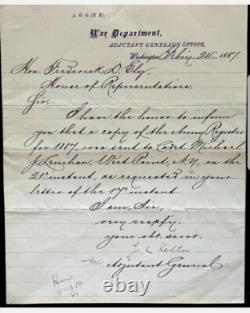 A G O (E B).
War Department,
ADJUTANT GENERAL'S OFFICE,
Washington, 24", 1887.
Hon. Frederick D. Ely,
House of Representatives.
Sir:
I have the honor to inform
you that a copy of the Army Register
for 1887 was sent to Cadet Michael
J. Lenihan, West Point, N.Y., on the
21st instant, as requested in your
letter of the 17th instant.
I am, Sir,
very respy.
your obt. servt.
J C Kelton
Adjutant General